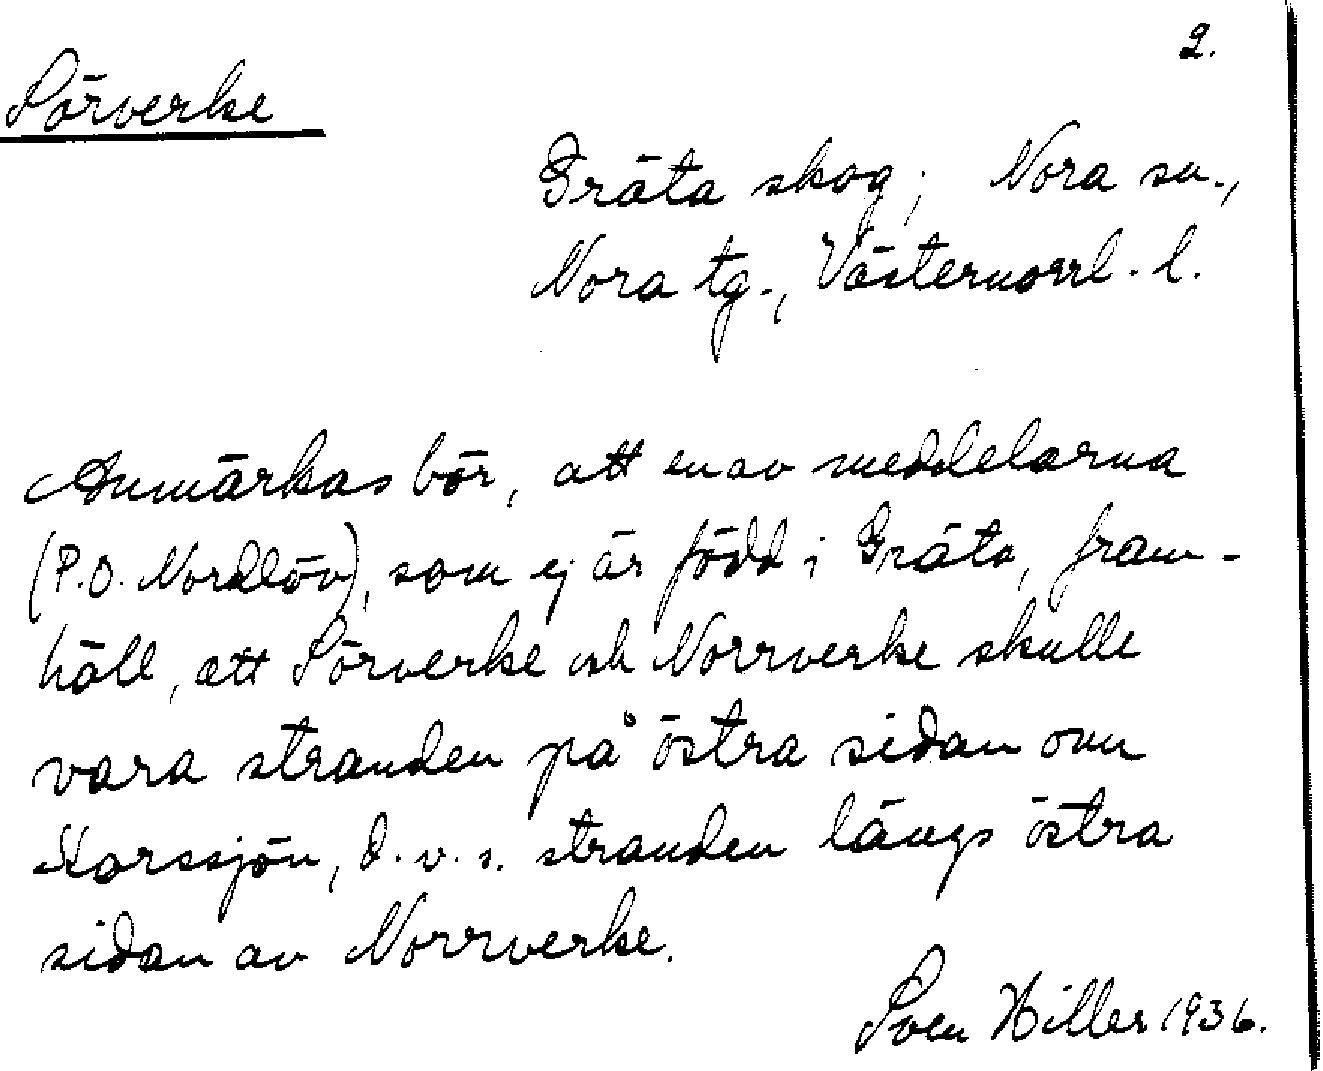 2.
Sörverke
Gräta skog; Nora sn.,
Nora tg., Västernorrl. l.
Anmärkas bör, att en av meddelarna
(P.O. Nordlöv), som ej är född i Gräta, fram-
höll, att Sörverke och Norrverke skulle
vara stranden på östra sidan om
Korssjön, d.v.s. stranden längs östra
sidan av Norrverke.
Sven Hiller 1936.